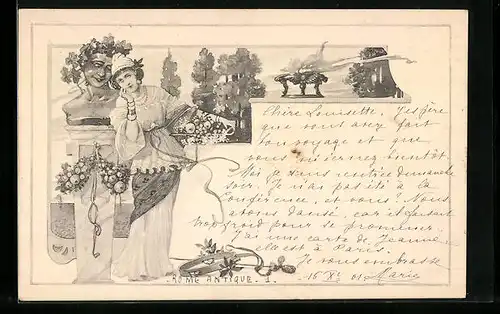 Chère Louisette. J'espère
que vous avez fait
bon voyage et que
vous m'écrirez bientôt
Moi je suis rentrée dimanche
soir. Je n'ai pas été à la
conférence, et vous? Nous
avons dansé, car il faisait
trop froid pour se promener.
J'ai une carte de Jeanne
elle est à Paris.
Je vous embrasse
16 XI 01 Marie
ROME ANTIQUE. 1.